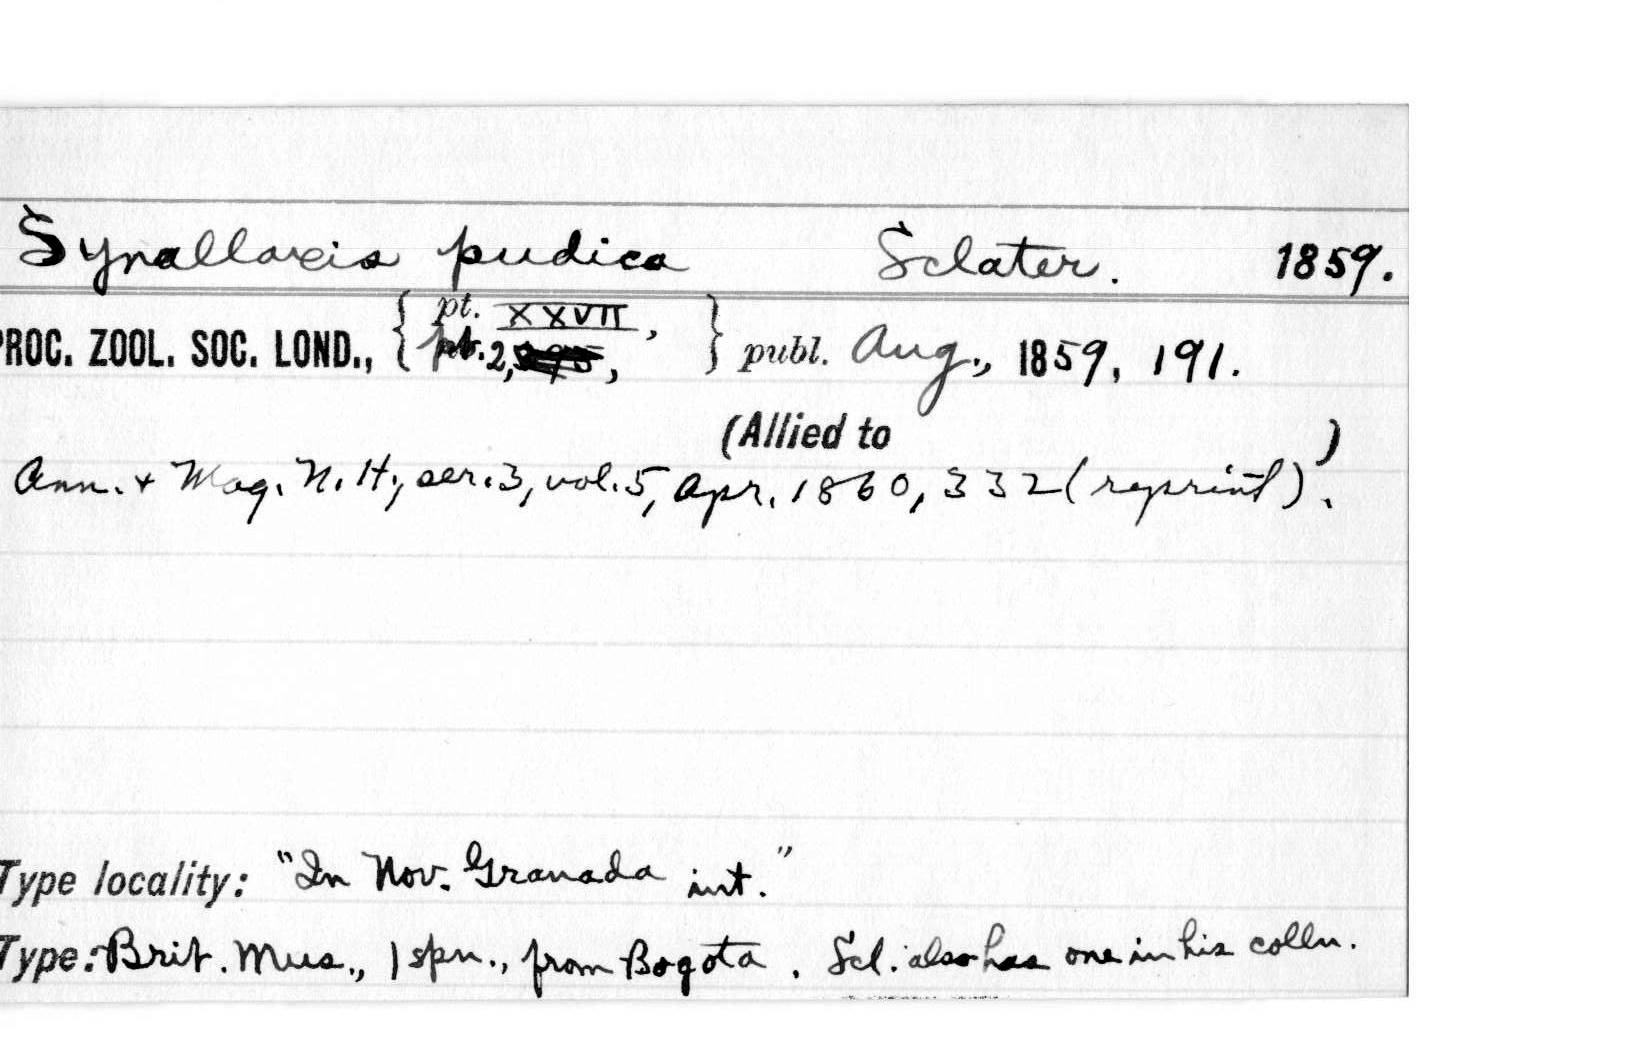 Synallaxis pudica Sclater. 1859.
PROC. ZOOL. SOC. LOND., { pt. XXVII, pt. 2, } publ. Aug., 1859, 191.
(Allied to )
Ann. + Mag. N. H., ser. 3, vol. 5, Apr. 1860, 332 (reprint).
Type locality: "In Nov. Granada int."
Type: Brit. Mus., 1 spn., from Bogota. Scl. also has one in his colln.